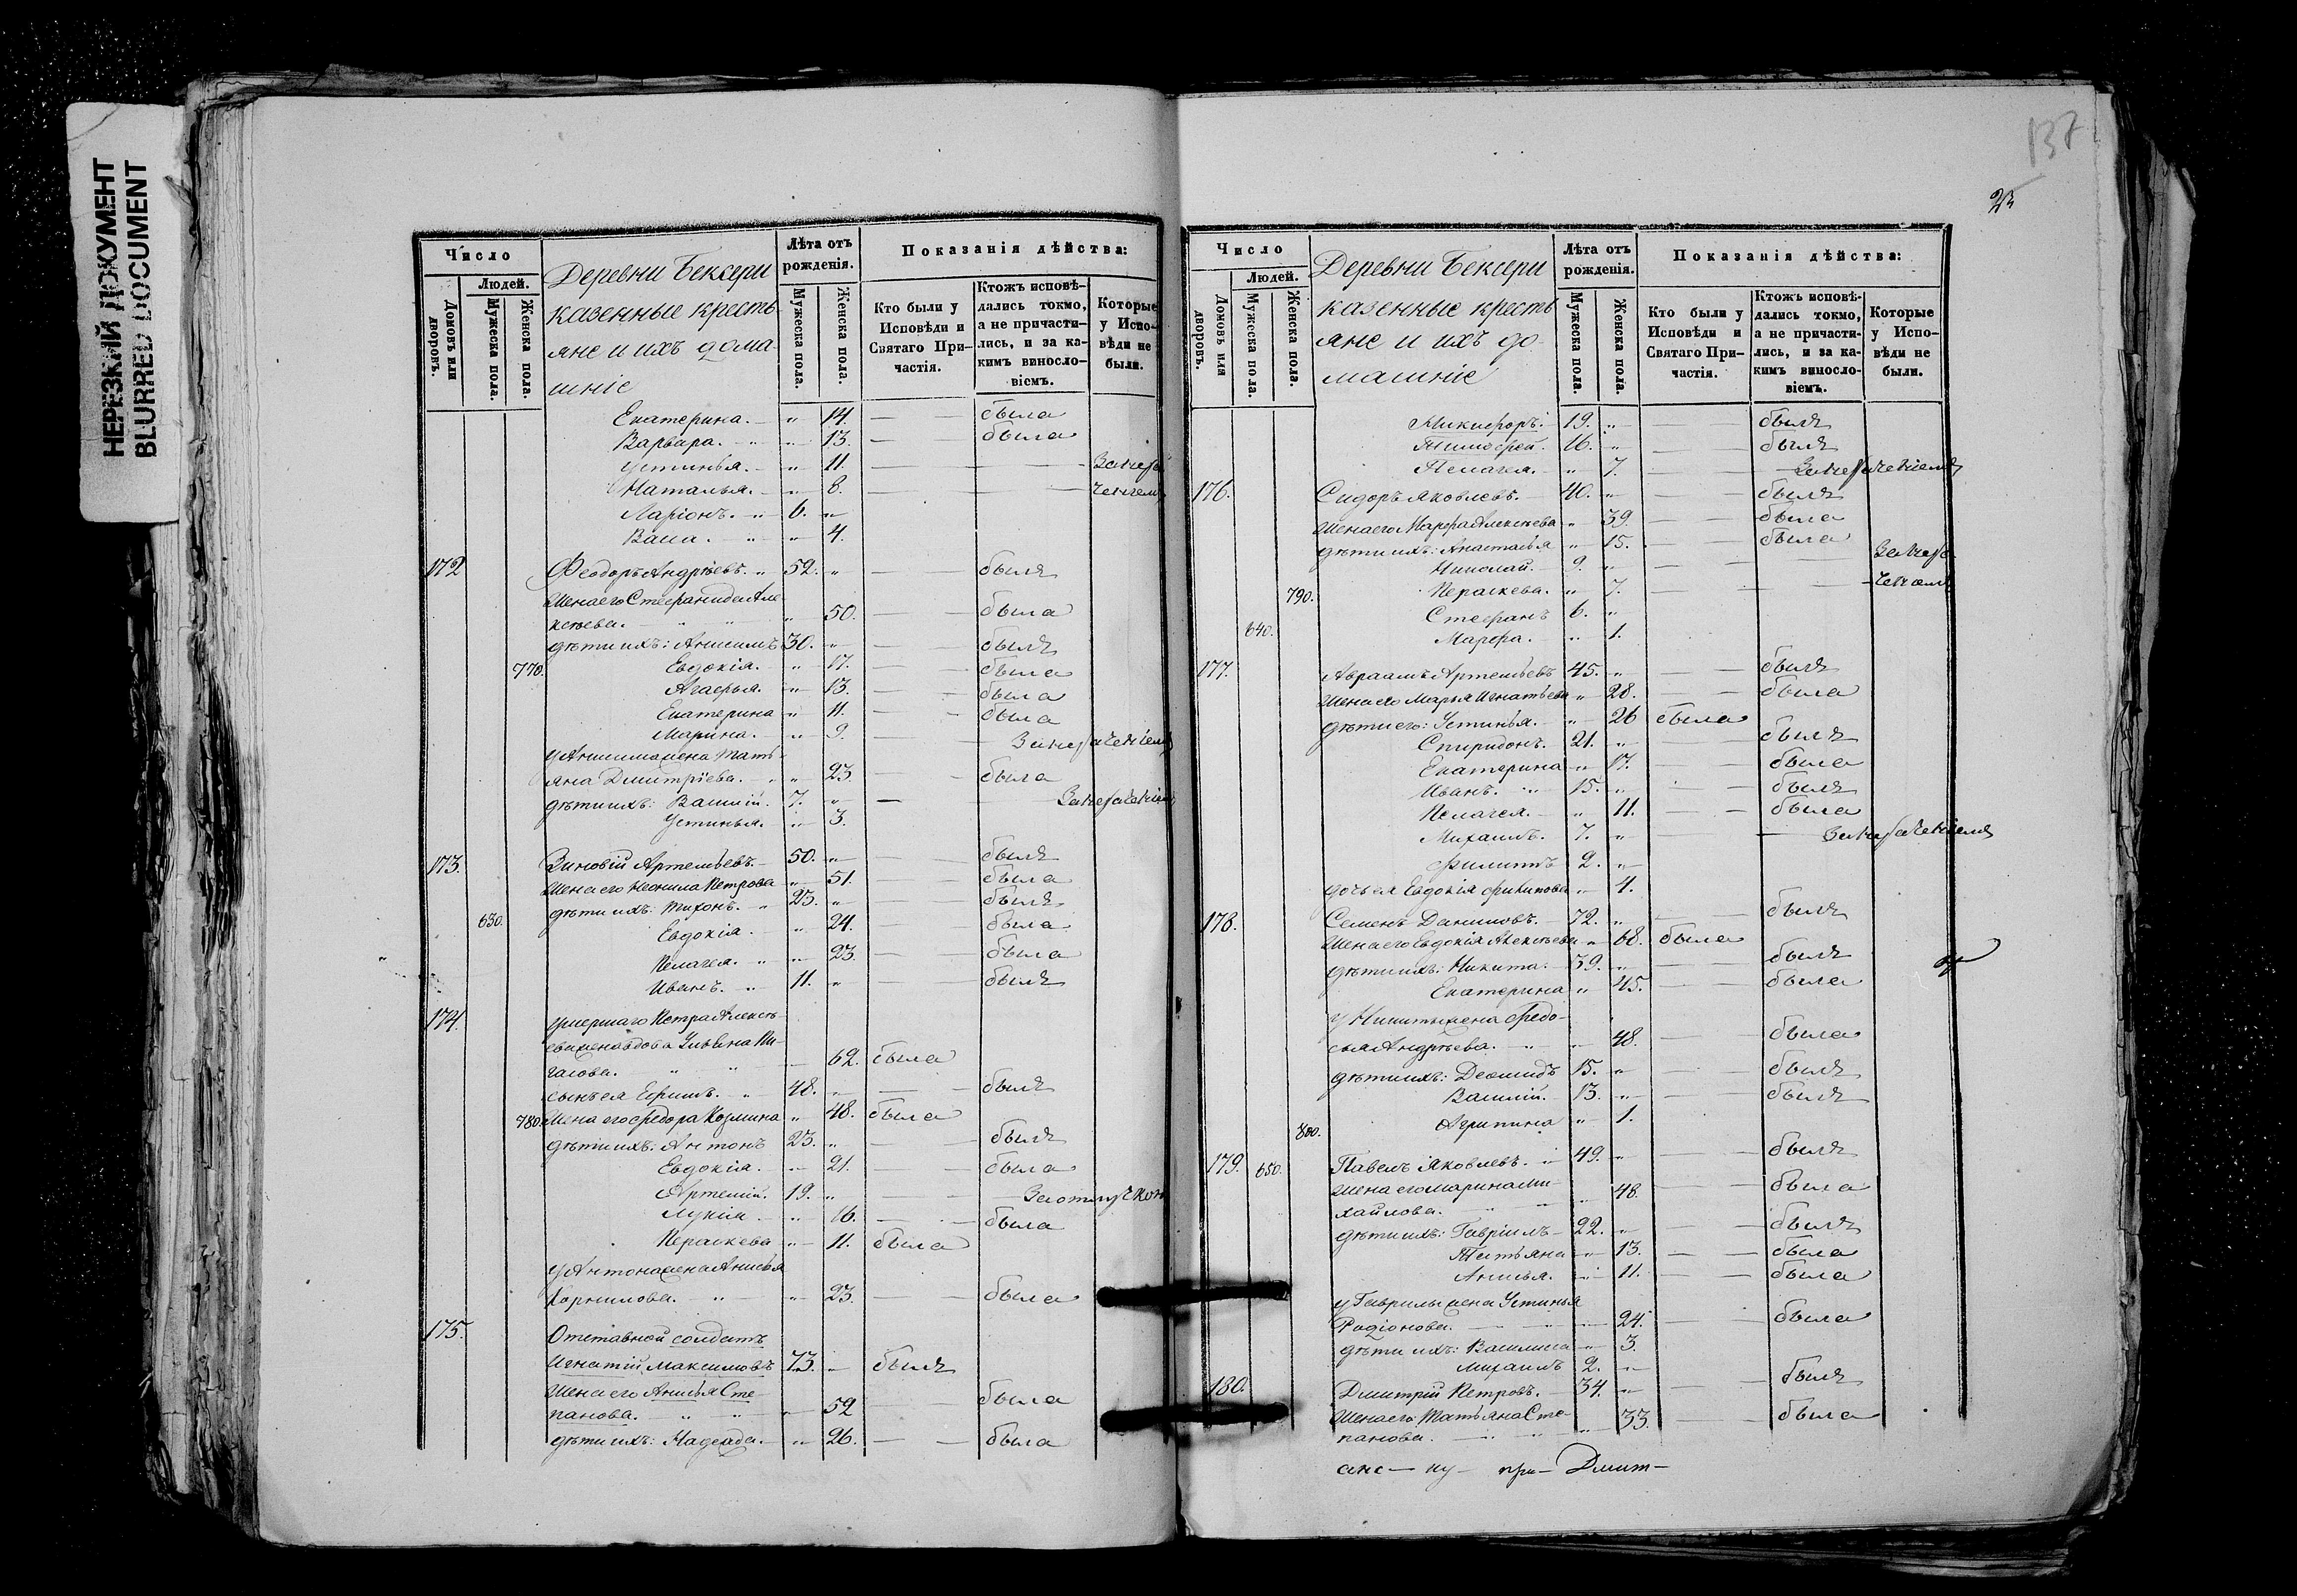 НЕРЕЗКИЙ ДОКУМЕНТ
BLURRED DOCUMENT
Число
Людей.
Домовъ или дворовъ.
Мужеска пола.
Женска пола.
Деревни Бексери
казенные кресть
яне и ихъ дома
шніе
Лѣта отъ рожденія.
Мужеска пола.
Женска пола.
Показанія дѣйства:
Кто были у Исповѣди и Святаго Причастія.
Ктожъ исповѣдались токмо, а не причастились, и за какимъ винословіемъ.
Которые у Исповѣди не были.
Екатерина. — „ 14. — — была
Варвара. „ — 13. — была
Устинья. — „ 11. — — —
Наталья. — „ 8. — —
Ларіонъ. — „ 6. „
Васса. — „ 4.
172 Феодоръ Андрѣевъ. „ 52. „ — — былъ
Жена его Стефанида Але-
ксѣева. „ „ 50. — — была
дѣти ихъ: Анисимъ 30. „ — — былъ
770. Евдокія. — „ 17. — — была
Агафья. „ 13. — — была
Екатерина „ 11. — — была
Марина. — „ 9. —
У Анисима жена Тать
яна Дмитріева. „ „ 23. — — была
дѣти ихъ: Василій. 7. „ —
Устинья. „ 3.
173. Зиновій Артемьевъ. — 50. „ — — былъ
Жена его Неонила Петрова „ 51. — — была
дѣти ихъ: Тихонъ. „ 25. „ — — былъ
630. Евдокія. — „ 24. — — была
Пелагея. „ „ 23. — — была
Иванъ. „ 11. „ — — былъ
174. умершаго Петра Алексѣ-
ева жена вдова Ульяна Пи-
гасова. „ „ 62. была
сынъ ея Ефимъ. „ 48. „ — — былъ
780. Жена его Федора Козмина „ 48. была
дѣти ихъ: Антонъ 23. „ — — былъ
Евдокія. — „ 21. — — была
Артемій. 19. „ — За отлучкою
Лукія — „ 16. — — была
Параскева „ 11. была
У Антона жена Анисья
Корнилова. „ „ 23. — — была
175. Отставной солдатъ
Игнатій Максимовъ 73. „ былъ
Жена его Анисья Сте-
панова. „ „ 52 — была
дѣти ихъ: Надежда. — „ 26. — — была
137
Число
Людей.
Домовъ или дворовъ.
Мужеска пола.
Женска пола.
Деревни Бексери
казенные кресть
яне и ихъ до-
машніе
Лѣта отъ рожденія.
Мужеска пола.
Женска пола.
Показанія дѣйства:
Кто были у Исповѣди и Святаго Причастія.
Ктожъ исповѣдались токмо, а не причастились, и за какимъ винословіемъ.
Которые у Исповѣди не были.
Никифоръ. 19. „ — былъ
Тимофей. 16. „ — былъ
Пелагея. „ 7. — —
176. Сидоръ Яковлевъ. — 40. „ — — былъ
Жена его Марфа Алексѣева „ 39. — — была
дѣти ихъ: Анастасья „ 15. — — была
Николай. — 9. „ — —
790. Параскева. „ 7. — —
Стефанъ 6. „
640. Марфа. — „ 1.
177. Авраамъ Артемьевъ 45. „ — былъ
Жена его Марья Игнатьева „ 28. — — была
дѣти его: Устинья. — „ 26 была
Спиридонъ. 21. „ — былъ
Екатерина „ 17. — — была
Иванъ. „ 15. „ — — былъ
Пелагея. — „ 11. — — была
Михаилъ. 7. „ —
Филиппъ 2. „
дочь ея Евдокія Филипова „ 4.
178. Семенъ Даниловъ. — 72. „ — былъ
Жена его Евдокія Алексѣева „ 68. была
дѣти ихъ: Никита. — 39. „ — былъ
Екатерина „ 45. — — была
У Никиты жена Федо-
сья Андрѣева. „ 48. — — была
дѣти ихъ: Деомидъ 15. „ — — былъ
Василій. — 13. „ — — былъ
800. Агрипина „ 1.
179. 650. Павелъ Яковлевъ. „ 49. „ — — былъ
Жена его Марина Ми-
хайлова. „ „ 48. — — была
дѣти ихъ: Гавріилъ — 22. „ — былъ
Татьяна „ 13. — — была
Анисья. „ 11. — — была
У Гаврилы жена Устинья
Родіонова. — „ 24. — — была
дѣти ихъ: Василиса „ 3.
Михаилъ 2. „
180. Дмитрій Петровъ. — 34. „ — — былъ
Жена его Татьяна Сте-
панова. „ „ 33. — — была
Дмит-